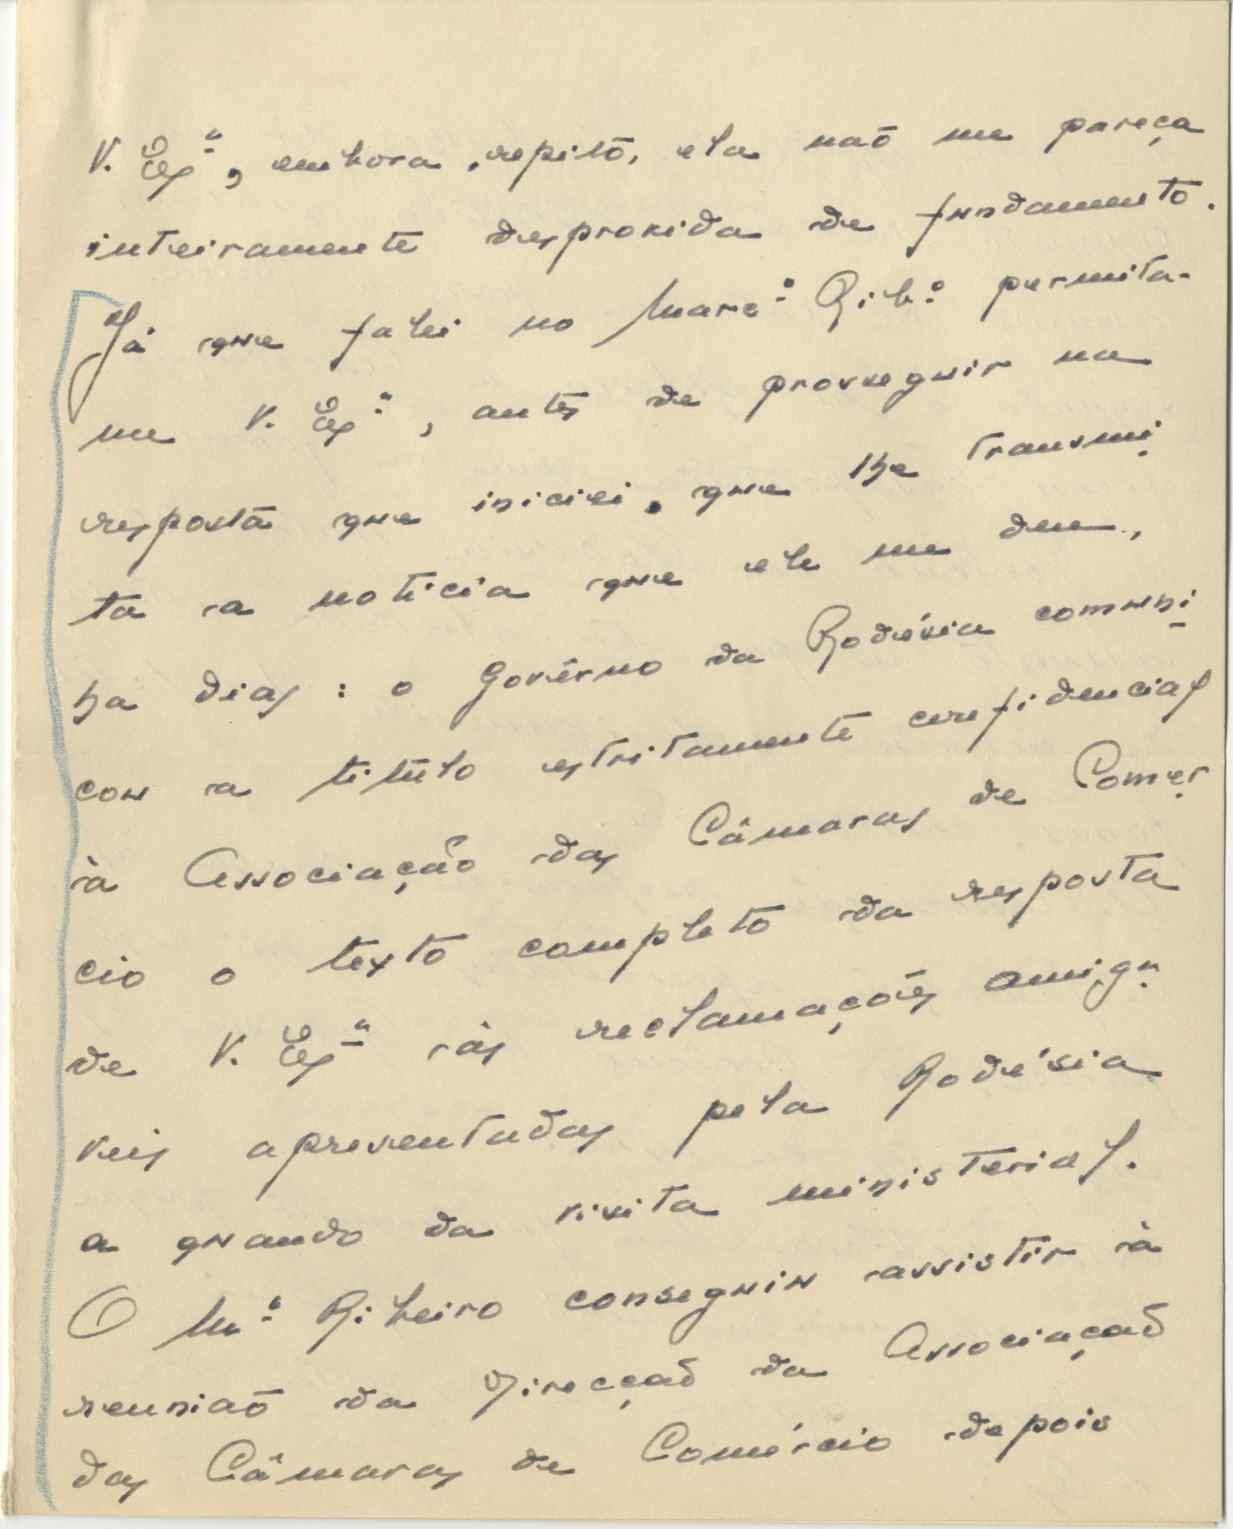 V. Exª, embora, repito, ela não me pareça
inteiramente desprovida de fundamento.
Já que falei no Marcº Ribº permita-
me V. Exª, antes de prosseguir na
resposta que iniciei, que lhe transmi
ta a notícia que ele me deu,
ha dias: o Govêrno da Rodésia comuni
cou a titúlo estritamente confidencial
à Associação das Câmaras de Comer
cio o texto completo da resposta
de V. Exª às reclamações amigá
veis apresentadas pela Rodésia
a quando da visita ministerial.
O Mº Ribeiro conseguiu assistir à
reunião da Direcção da Associação
das Câmaras de Comércio depois